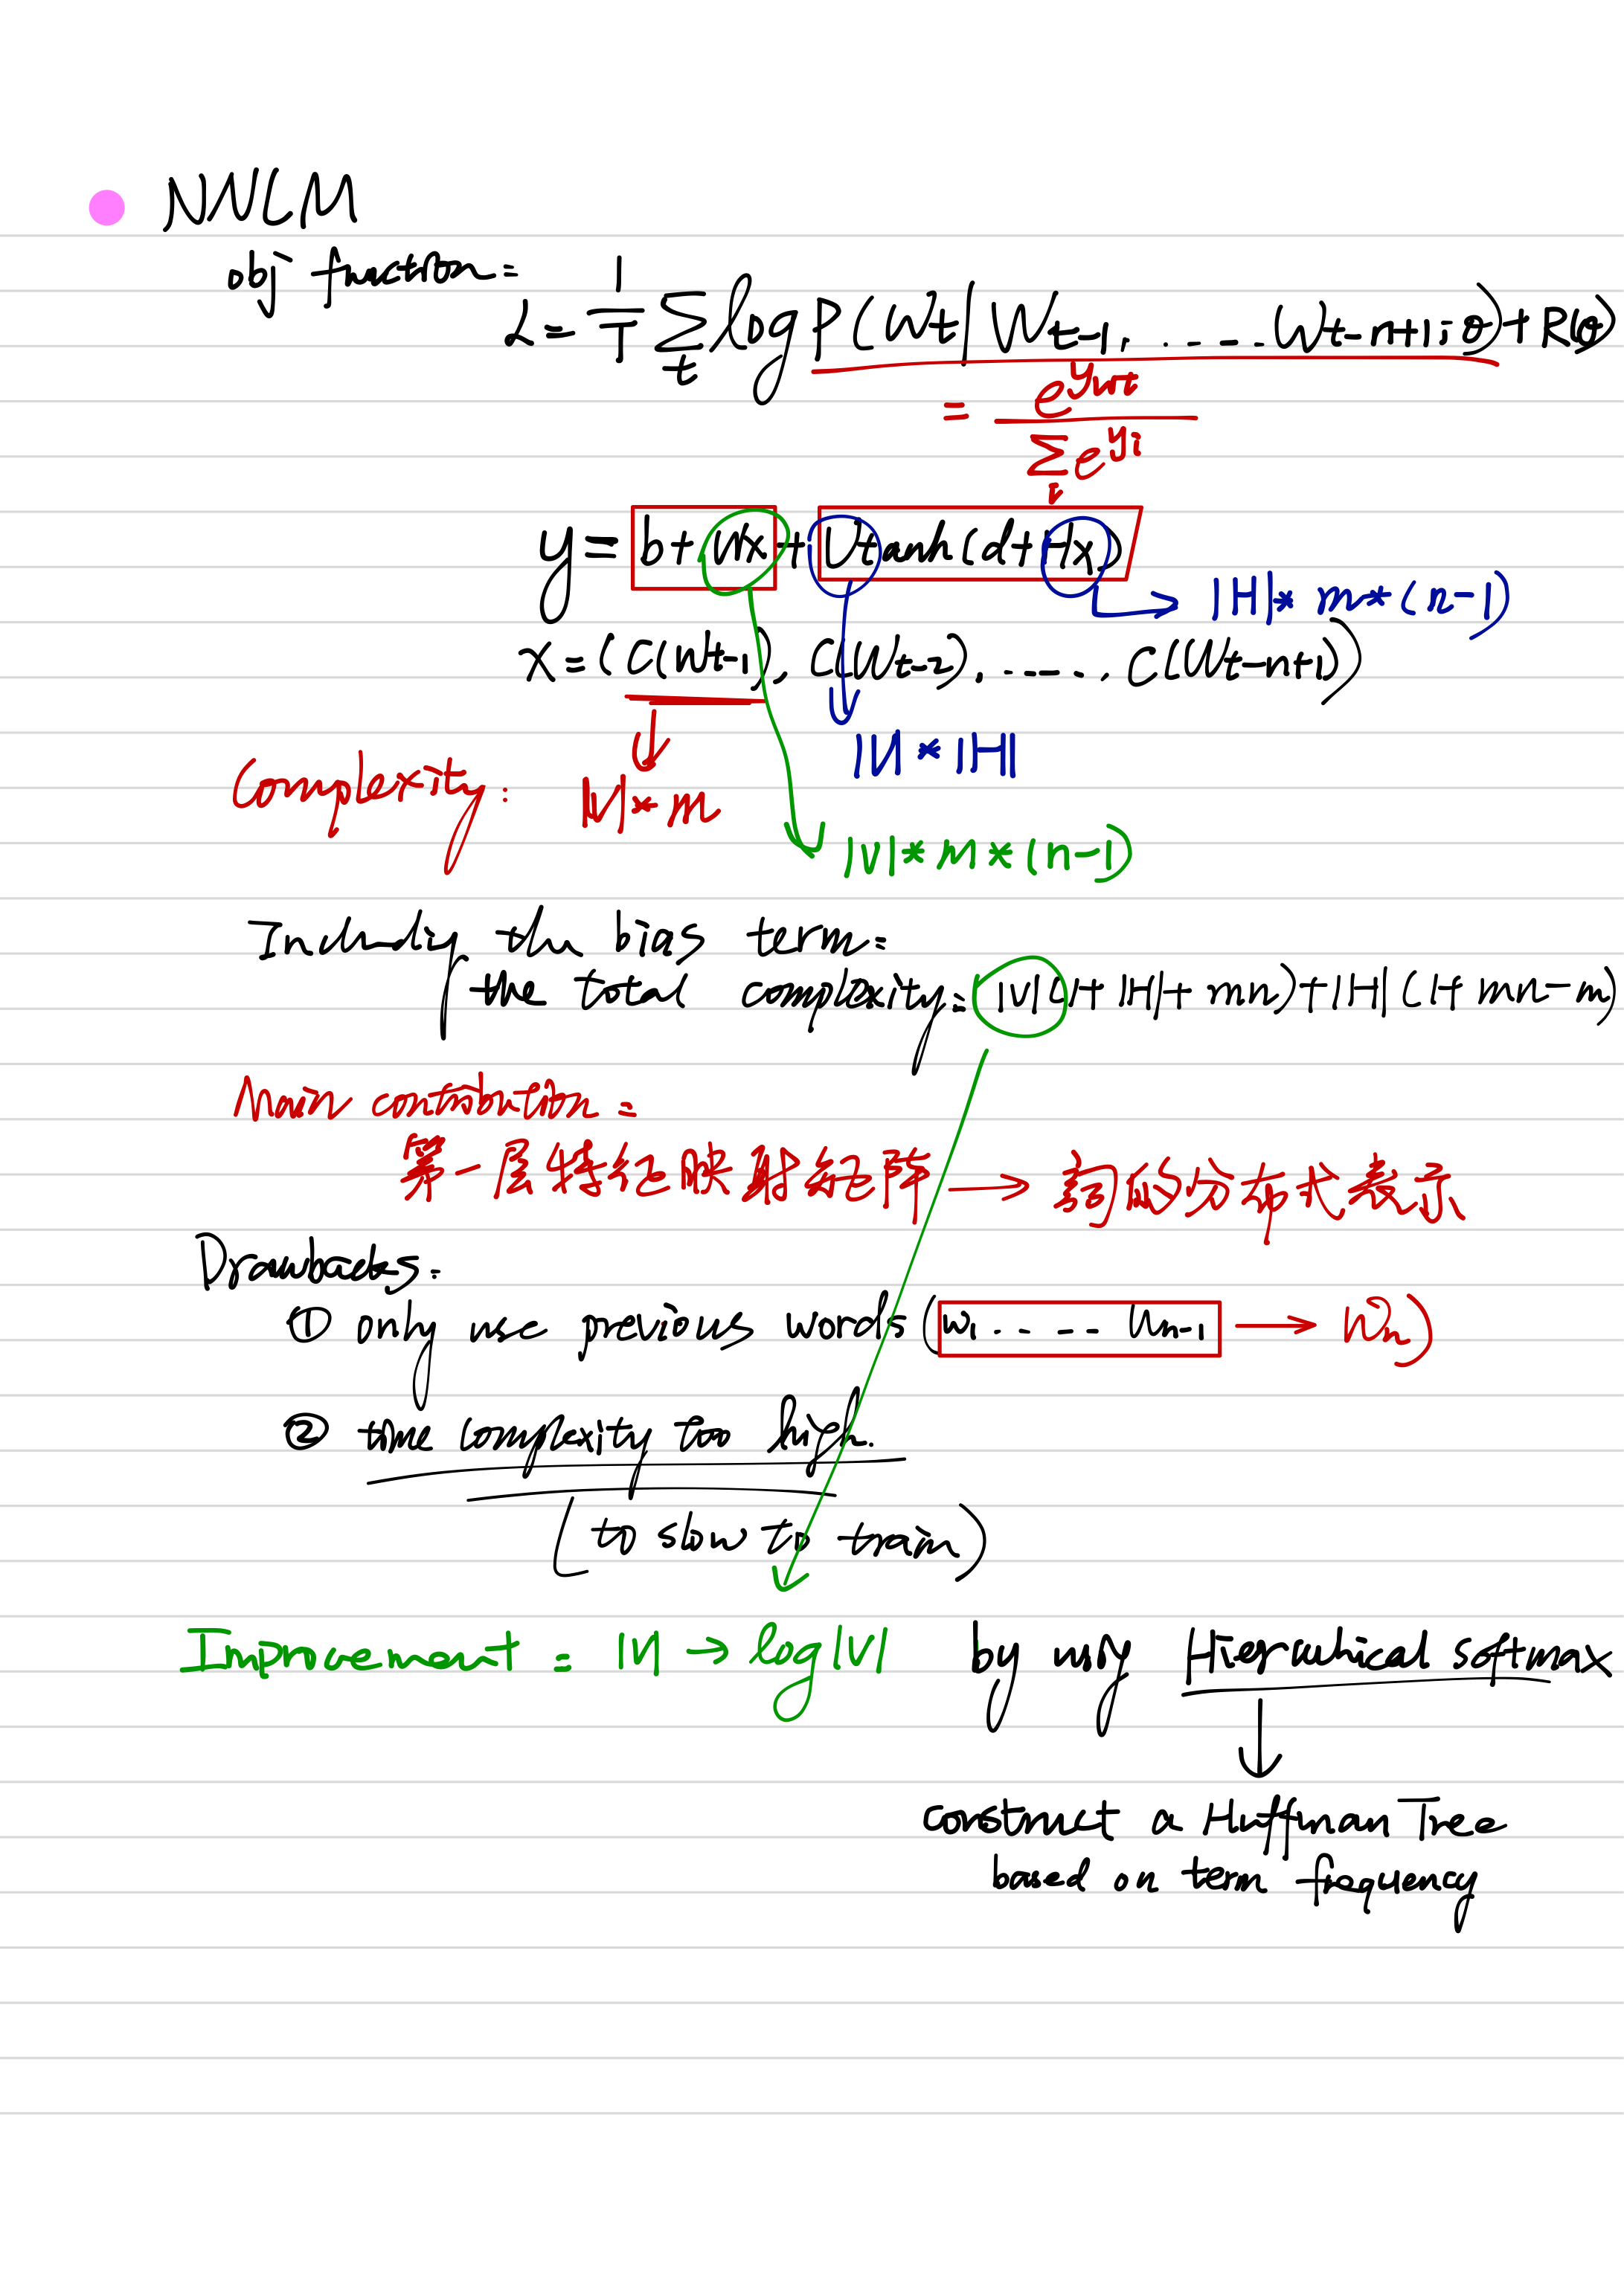 NNLM
obj function:
L = 1/T Σ_t log P(Wt | Wt-1, ...... Wt-n+1; θ) + R(θ)
= e^{y_wt} / Σ_i e^{y_i}
y = b + Wx + U tanh(d + Hx)
|H| * m * (n-1)
x = (C(Wt-1), C(Wt-2), ...... C(Wt-n+1))
|V| * |H|
Complexity: |V| * m
|V| * m * (n-1)
Including the bias term:
the total complexity: |V|(1+|H|+mn)+|H|(1+mn-m)
Main contribution:
第一层特征映射矩阵 → 词的分布式表示
Drawbacks:
① only use previous words (w1 ...... wn-1 → wn)
② time complexity too high.
(to slow to train)
Improvement: |V| → log|V| by using Hierarchical softmax
construct a Huffman Tree
based on term frequency